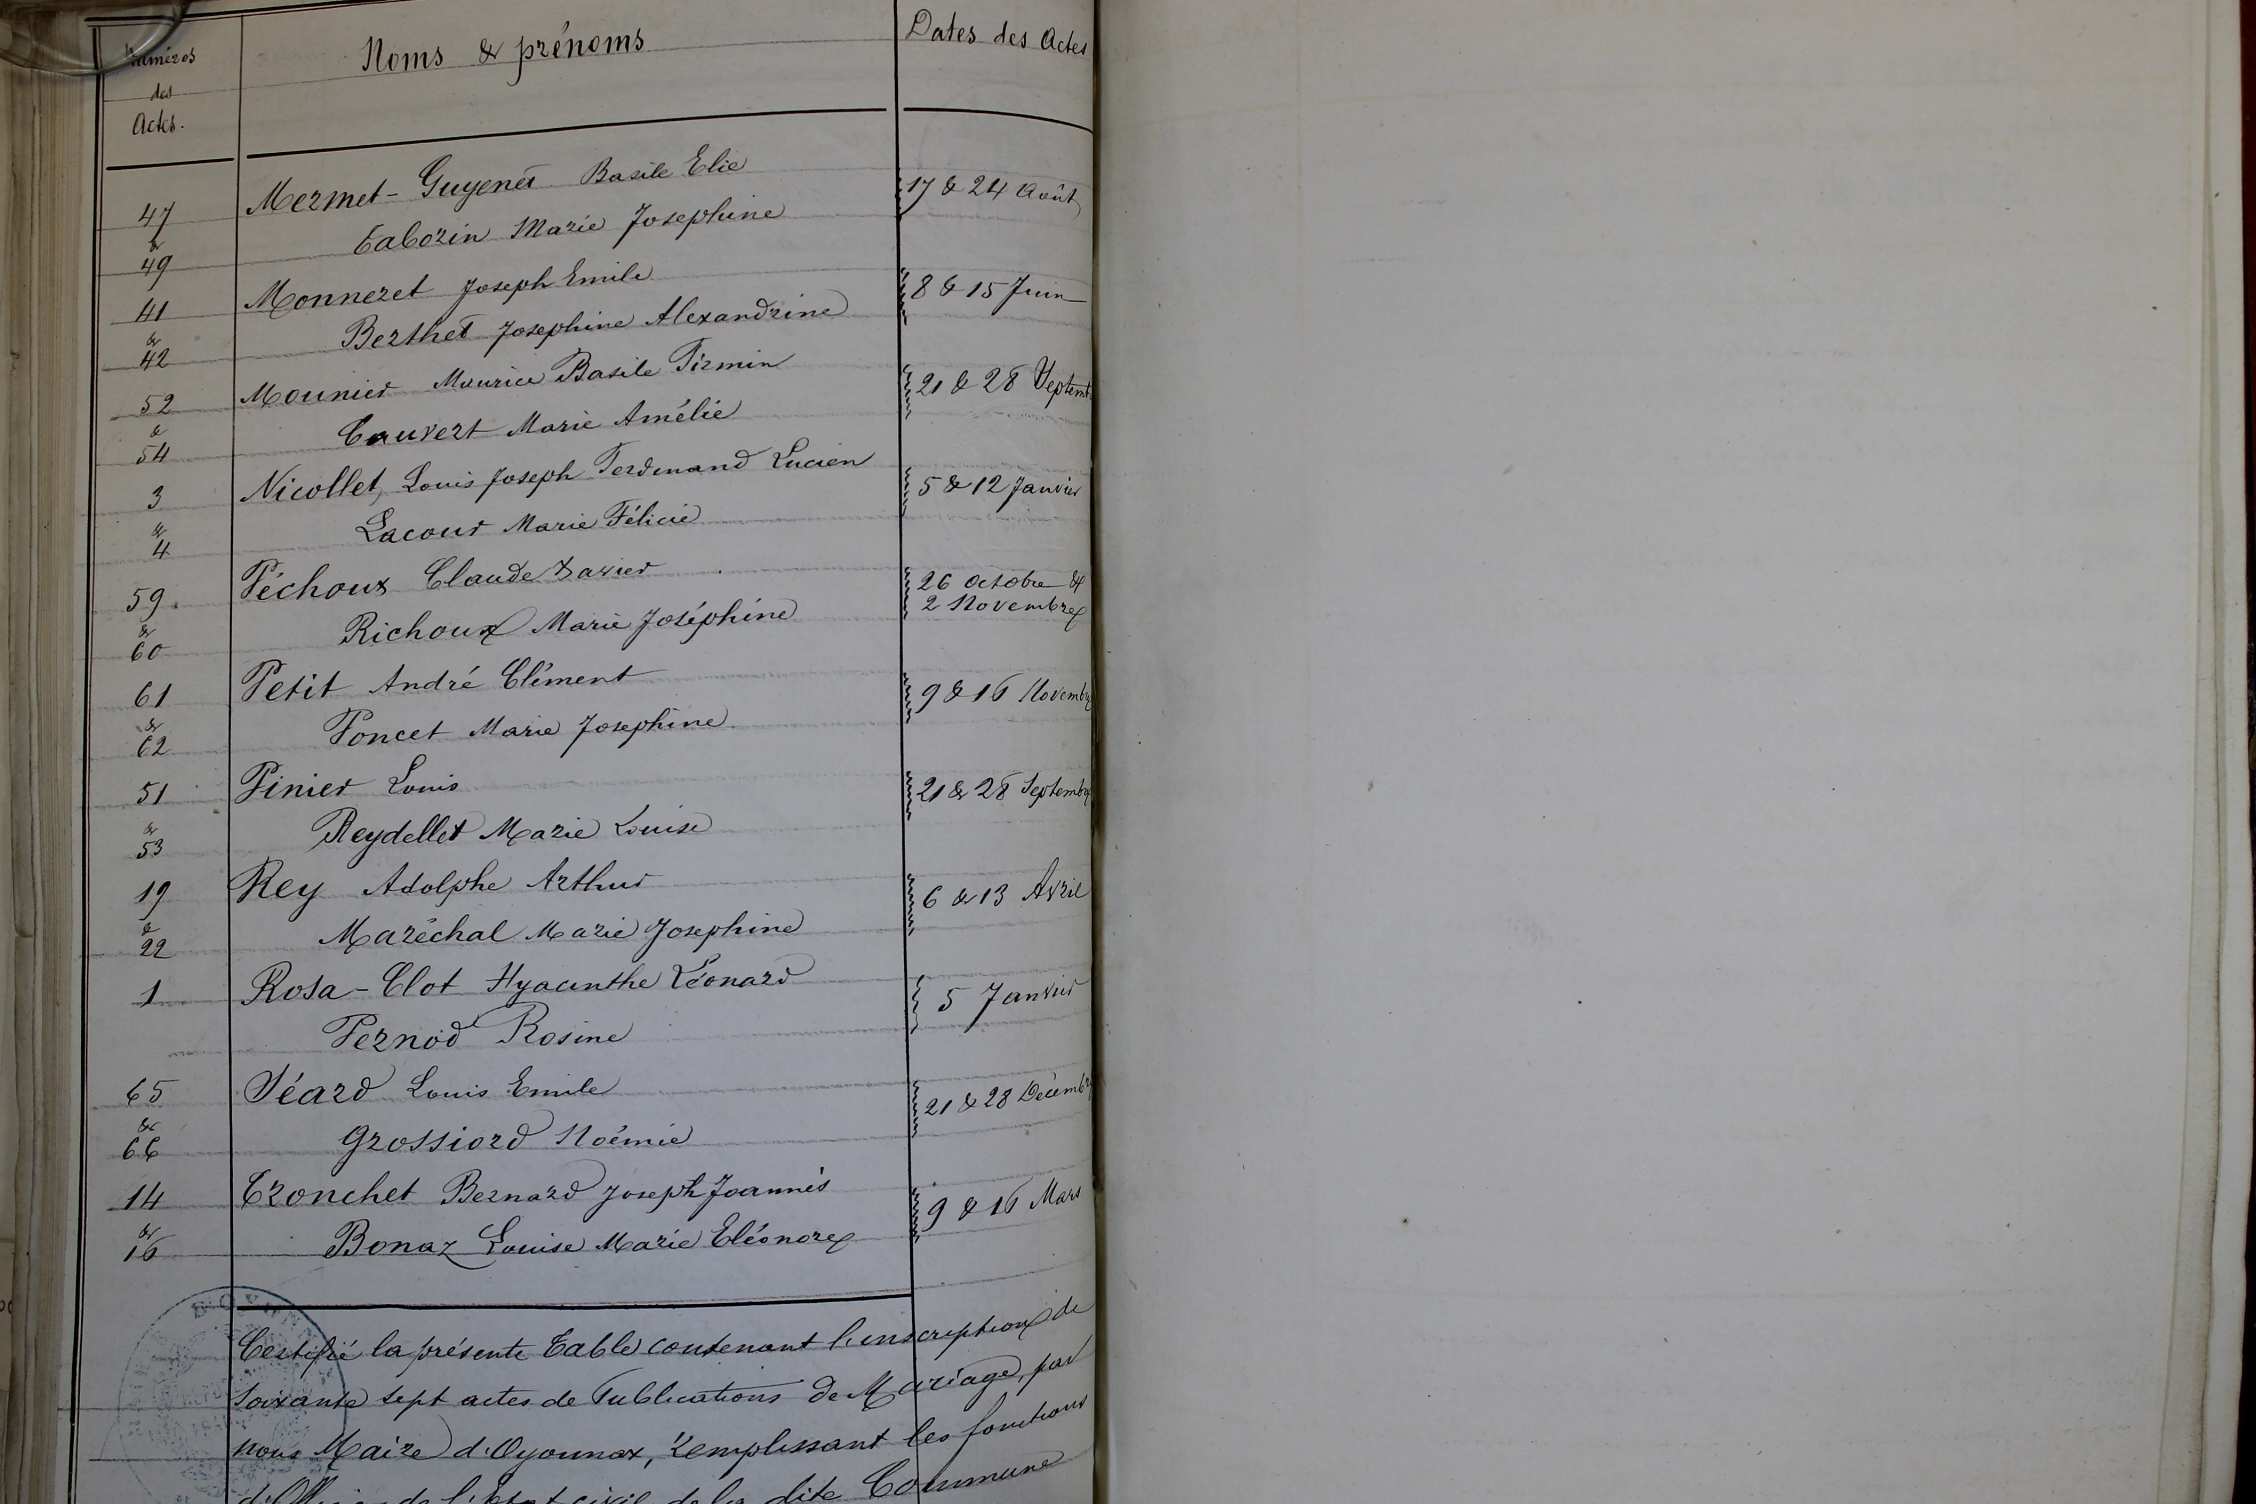 Numéros des Actes. Noms & prénoms Dates des Actes
47 Mermet-Guyenet Basile Elie 17 & 24 Août
& 49 Taborin Marie Josephine
41 Monneret Joseph Emile 8 & 15 Juin
& 42 Berthet Josephine Alexandrine
52 Mounier Maurice Basile Firmin 21 & 28 Septemb
& 54 Cauvert Marie Amélie
3 Nicollet, Louis Joseph Ferdinand Lucien 5 & 12 Janvier
& 4 Lacour Marie Félicie
59 Péchoux Claude Xavier 26 Octobre &
& 60 Richoux Marie Joséphine 2 Novembre
61 Petit André Clément 9 & 16 Novembre
& 62 Poncet Marie Josephine
51 Pinier Louis 21 & 28 Septembre
& 53 Reydellet Marie Louise
19 Rey Adolphe Arthur 6 & 13 Avril
& 22 Maréchal Marie Josephine
1 Rosa-Clot Hyacinthe Léonard 5 Janvier
Pernod Rosine
65 Séard Louis Emile 21 & 28 Décembre
& 66 Grossiord Noémie
14 Tronchet Bernard Joseph Joannès 9 & 16 Mars
& 16 Bonaz Louise Marie Eléonore
Certifié la présente Table contenant l'inscription de
soixante sept actes de Publications de Mariage, par
nous Maire d'Oyonnax, remplissant les fonctions
d'Officier de l'Etat civil de la dite Commune